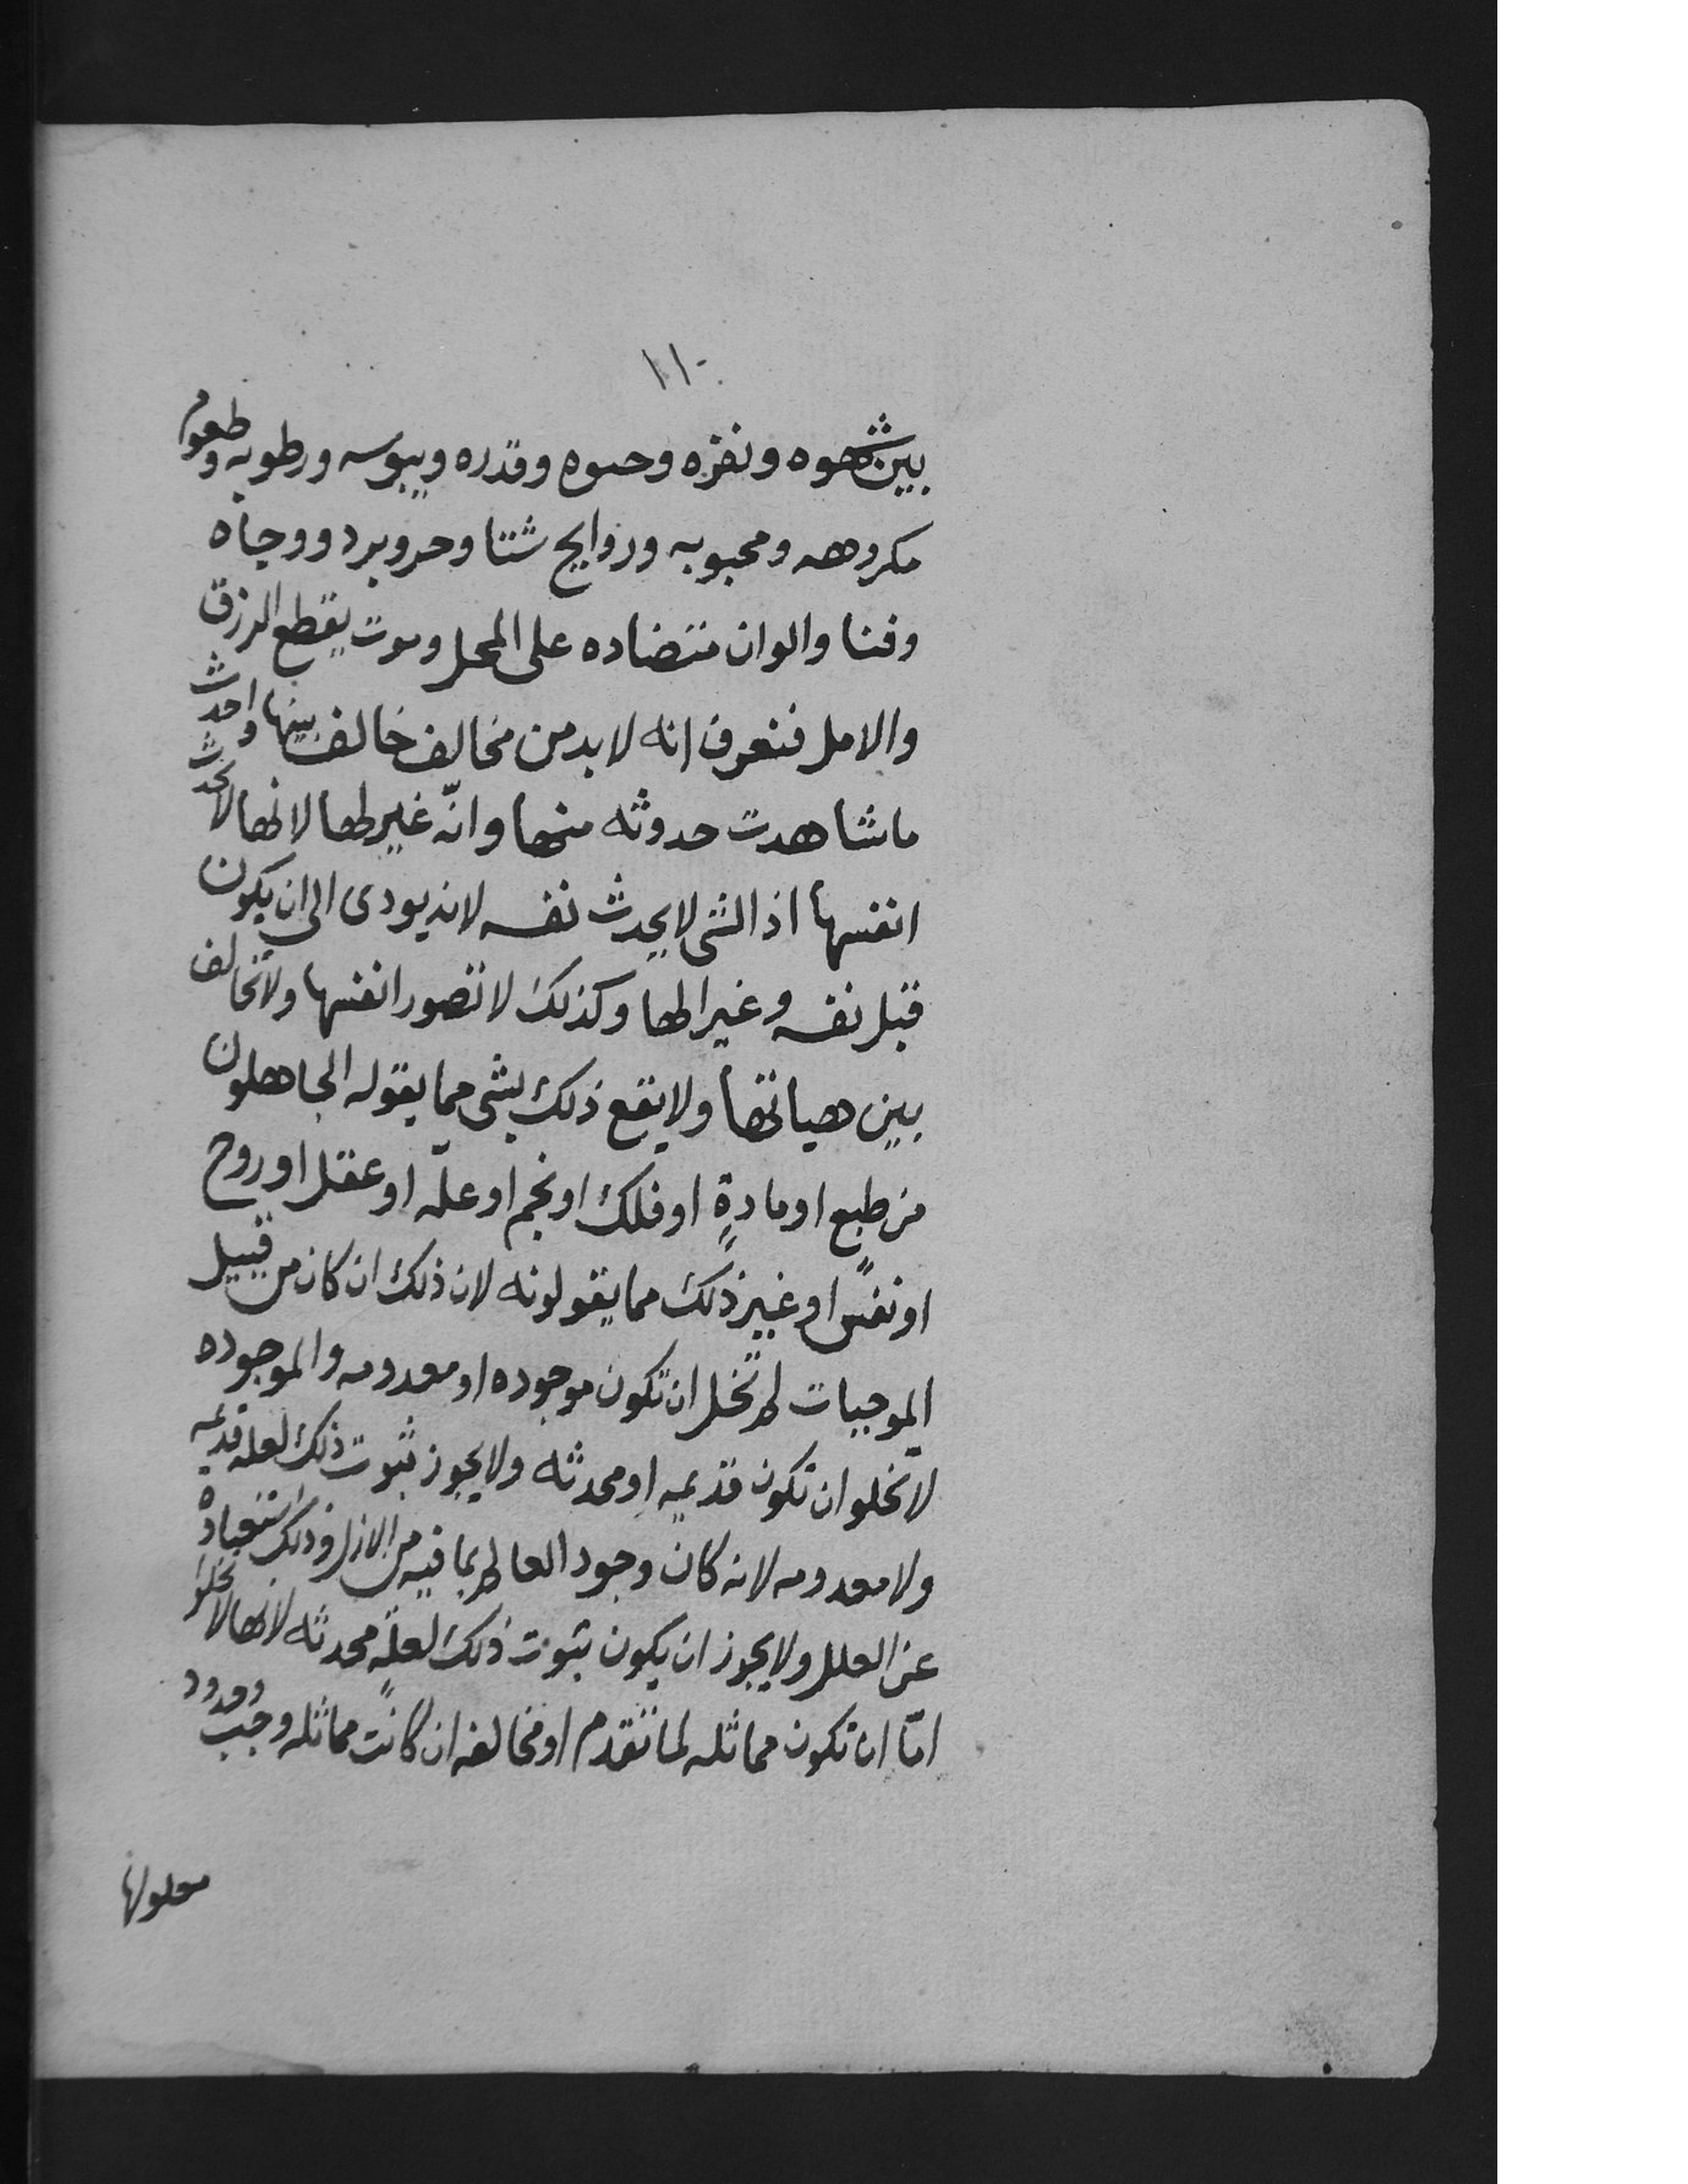 ١١٠
بين شهوه ونفره وحيوه وقدره ويبوسه ورطوبه وطعوم
مكروهه ومحبوبه وروايح شتا وحر وبرد ووجاه
وفنا والوان متضاده على المحل وموت يقطع الرزق
والامل فنعرف انه لابد من مخالف خالف بينها واحدث
ما شاهدت حدوثه منها وانّه غير لها لانها لا تحدث
انفسها اذ الشى لا يحدث نفسه لانه يودى الى ان يكون
قبل نفسه وغيرا لها وكذلك لا تصور انفسها ولا تخالف
بين هياتها ولا يقع ذلك بشى مما يقوله الجاهلون
من طبع او مادةٍ او فلك او نجم او علّه او عقل او روح
او نفسٍ او غير ذلك مما يقولونه لان ذلك ان كان من قبيل
الموجبات لم تخل ان تكون موجوده او معدومه والموجوده
لا تخلو ان تكون قديمه او محدثه ولا يجوز ثبوت ذلك لعله قديمه
ولا معدومه لانه كان وجود العالم بما فيه من الازل وذلك استغناؤه
عن العلل ولا يجوز ان يكون ثبوت ذلك لعلّةٍ محدثه لانها لا تخلو
امّا ان تكون مماثله لما تقدم او مخالفه ان كانت مماثله وجب
معلولها